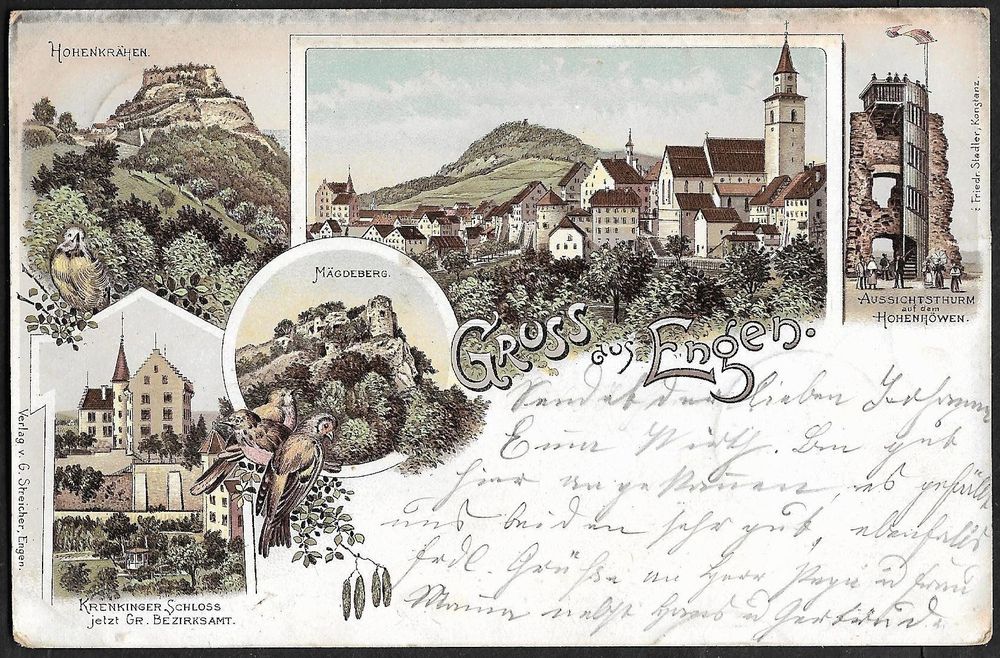 HOHENKRÄHEN.
MÄGDEBERG.
AUSSICHTSTHURM
auf dem
HOHENHÖWEN.
: Friedr. Stadler, Konstanz.
GRUSS aus Engen.
KRENKINGER SCHLOSS
jetzt GR. BEZIRKSAMT.
Verlag v. G. Streicher, Engen.
Sendet der lieben
Emma Wirth. Bin gut
hier angekommen, es gefällt
uns beiden sehr gut, ebenfalls
frdl. Grüße an Herr Papa u Frau
Mama nebst Hans u Gertrud.